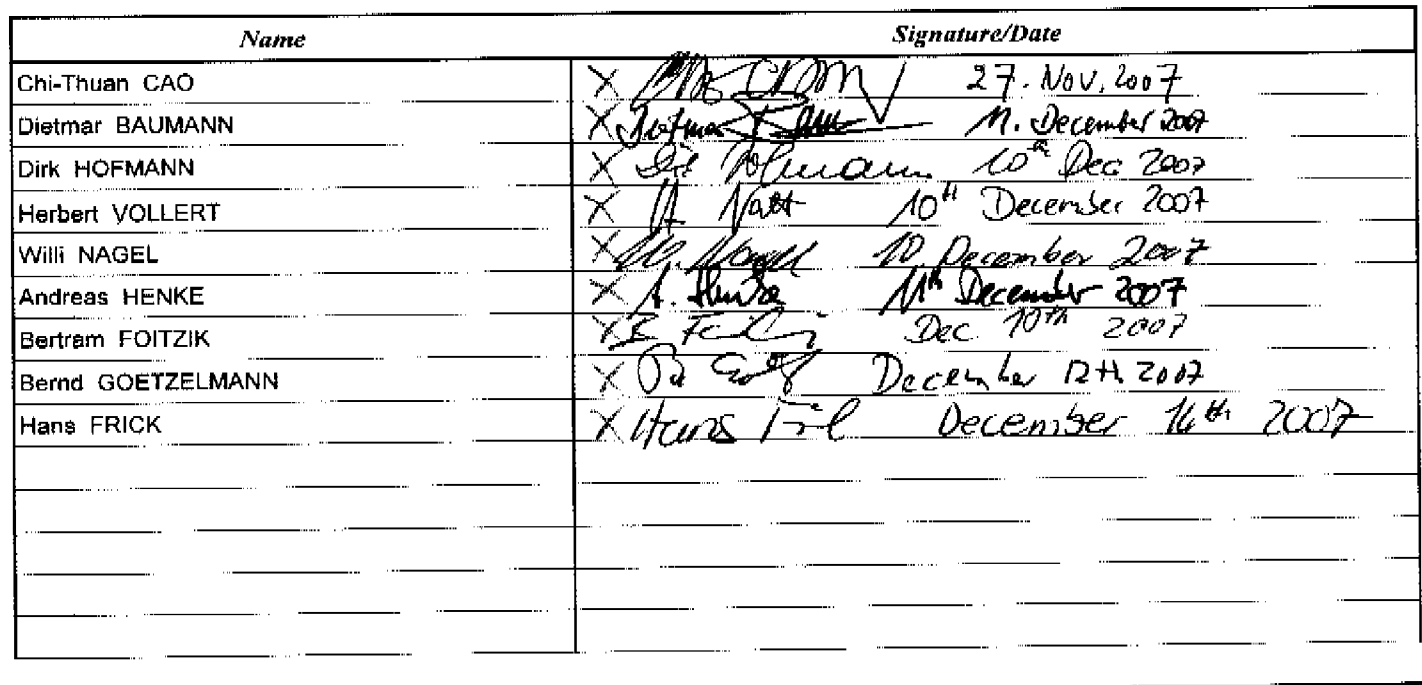 Name Signature/Date
Chi-Thuan CAO X 27. Nov. 2007
Dietmar BAUMANN X Dietmar 11. December 2007
Dirk HOFMANN X Dirk Hofmann 10th Dec 2007
Herbert VOLLERT X 10th December 2007
Willi NAGEL X W. Nagel 10 December 2007
Andreas HENKE X A. Henke 11th December 2007
Bertram FOITZIK X Dec 10th 2007
Bernd GOETZELMANN X December 12th 2007
Hans FRICK X Hans December 16th 2007